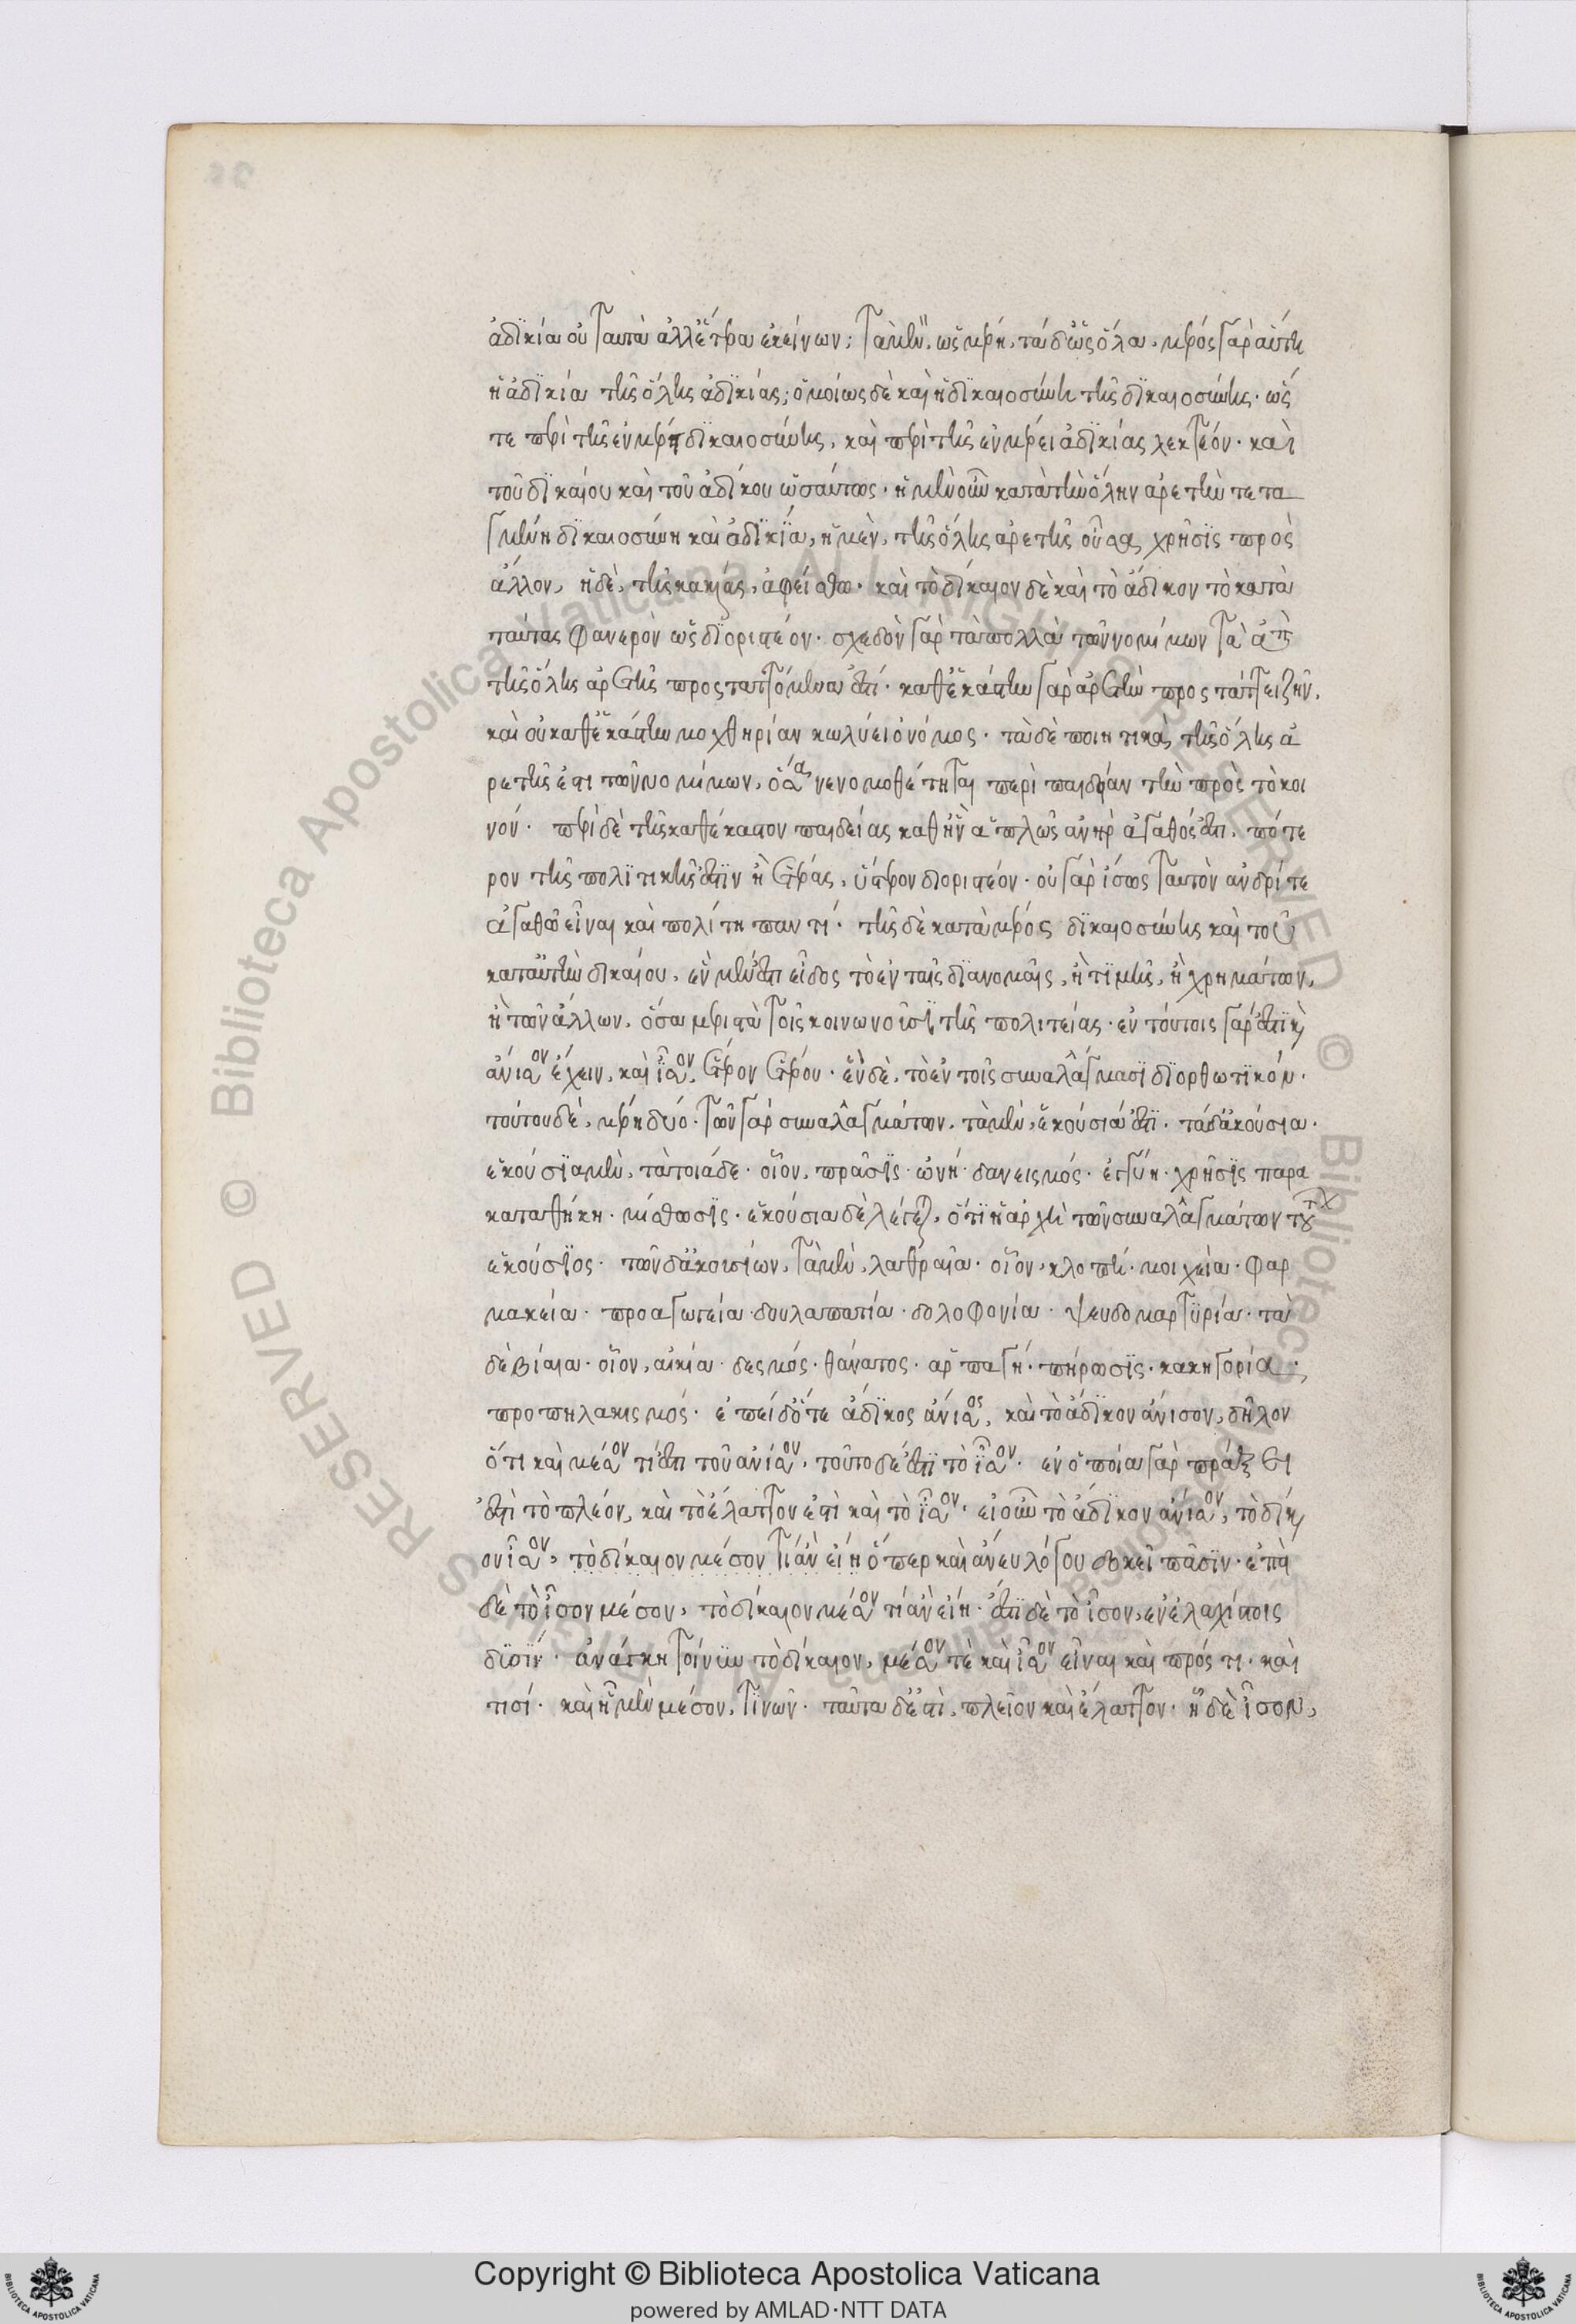 ἀδικία οὐ ταυτὰ ἀλλ' ἕτερα ἐκείνων; τὰ μὲν, ὡς μέρη, τὰ δ' ὡς ὅλα, μέρος γὰρ αὕτη
ἡ ἀδικία τῆς ὅλης ἀδικίας; ὁμοίως δὲ καὶ ἡ δικαιοσύνη τῆς δικαιοσύνης. ὥς
τε περὶ τῆς ἐν μέρει δικαιοσύνης, καὶ περὶ τῆς ἐν μέρει ἀδικίας λεκτέον. καὶ
τοῦ δικαίου καὶ τοῦ ἀδίκου ὡσαύτως. ἡ μὲν οὖν κατὰ τὴν ὅλην ἀρετὴν τετα
γμένη δικαιοσύνη καὶ ἀδικία, ἡ μὲν, τῆς ὅλης ἀρετῆς οὖσα χρῆσις πρὸς
ἄλλον, ἡ δὲ, τῆς κακίας, ἀφείσθω. καὶ τὸ δίκαιον δὲ καὶ τὸ ἄδικον τὸ κατὰ
ταύτας φανερὸν ὡς διοριστέον. σχεδὸν γὰρ τὰ πολλὰ τῶν νομίμων τὰ ἀπὸ
τῆς ὅλης ἀρετῆς προσταττόμενα ἐστί. καθ' ἑκάστην γὰρ ἀρετὴν προστάττει ζῆν,
καὶ οὐ καθ' ἑκάστην μοχθηρίαν κωλύει ὁ νόμος. τὰ δὲ ποιητικὰ τῆς ὅλης ἀ
ρετῆς ἐστι τῶν νομίμων, ὅσα νενομοθέτηται περὶ παιδείαν τὴν πρὸς τὸ κοι
νόν. περὶ δὲ τῆς καθ' ἕκαστον παιδείας καθ' ἣν ἁπλῶς ἀνὴρ ἀγαθός ἐστι, πότε
ρον τῆς πολιτικῆς ἐστὶν ἢ ἑτέρας, ὕστερον διοριστέον. οὐ γὰρ ἴσως ταυτὸν ἀνδρί τε
ἀγαθῷ εἶναι καὶ πολίτῃ παντί. τῆς δὲ κατὰ μέρος δικαιοσύνης καὶ τοῦ
κατ' αὐτὴν δικαίου, ἓν μέν ἐστι εἶδος τὸ ἐν ταῖς διανομαῖς, ἢ τιμῆς, ἢ χρημάτων,
ἢ τῶν ἄλλων, ὅσα μεριστὰ τοῖς κοινωνοῦσι τῆς πολιτείας. ἐν τούτοις γάρ ἐστι καὶ
ἄνισον ἔχειν, καὶ ἴσον, ἕτερον ἑτέρου. ἓν δὲ, τὸ ἐν τοῖς συναλλάγμασι διορθωτικόν.
τούτου δὲ, μέρη δύο. τῶν γὰρ συναλλαγμάτων, τὰ μὲν, ἑκούσιά ἐστι. τὰ δ' ἀκούσια.
ἑκούσια μὲν, τὰ τοιάδε. οἷον, πρᾶσις. ὠνή. δανεισμός. ἐγγύη. χρῆσις παρα
καταθήκη. μίσθωσις. ἑκούσια δὲ λέγεται, ὅτι ἡ ἀρχὴ τῶν συναλλαγμάτων τούτων
ἑκούσιος. τῶν δ' ἀκουσίων, τὰ μὲν, λαθραῖα. οἷον, κλοπή. μοιχεία. φαρ
μακεία. προαγωγεία. δουλαπατία. δολοφονία. ψευδομαρτυρία. τὰ
δὲ βίαια. οἷον, αἰκία. δεσμός. θάνατος. ἁρπαγή. πήρωσις. κακηγορία.
προπηλακισμός. ἐπεὶ δ' ὅ τε ἄδικος ἄνισος, καὶ τὸ ἄδικον ἄνισον, δῆλον
ὅτι καὶ μέσον τί ἐστι τοῦ ἀνίσου, τοῦτο δέ ἐστι τὸ ἴσον. ἐν ὁποίᾳ γὰρ πράξει
ἐστὶ τὸ πλέον, καὶ τὸ ἔλαττον ἐστὶ καὶ τὸ ἴσον. εἰ οὖν τὸ ἄδικον ἄνισον, τὸ δίκαι
ον ἴσον, τὸ δίκαιον μέσον τι ἂν εἴη ὅπερ καὶ ἄνευ λόγου δοκεῖ πᾶσιν. ἐπεὶ
δὲ τὸ ἴσον μέσον, τὸ δίκαιον μέσον τι ἂν εἴη. ἔστι δὲ τὸ ἴσον, ἐν ἐλαχίστοις
δυσίν. ἀνάγκη τοίνυν τὸ δίκαιον, μέσον τὲ καὶ ἴσον εἶναι καὶ πρός τι. καὶ
τισί. καὶ ᾗ μὲν μέσον, τινῶν. ταῦτα δ' ἐστὶ, πλεῖον καὶ ἔλαττον. ᾗ δὲ ἴσον,
Copyright © Biblioteca Apostolica Vaticana
powered by AMLAD·NTT DATA